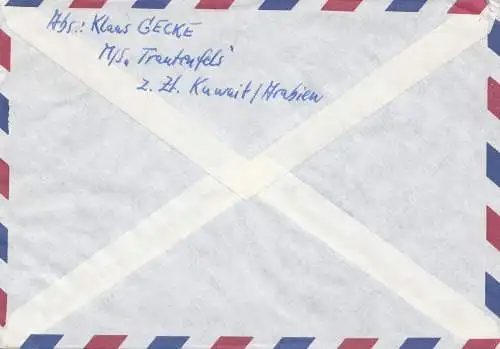 Abs.: Klaus GECKE
M/S „Trautenfels"
z. Zt. Kuwait/Arabien